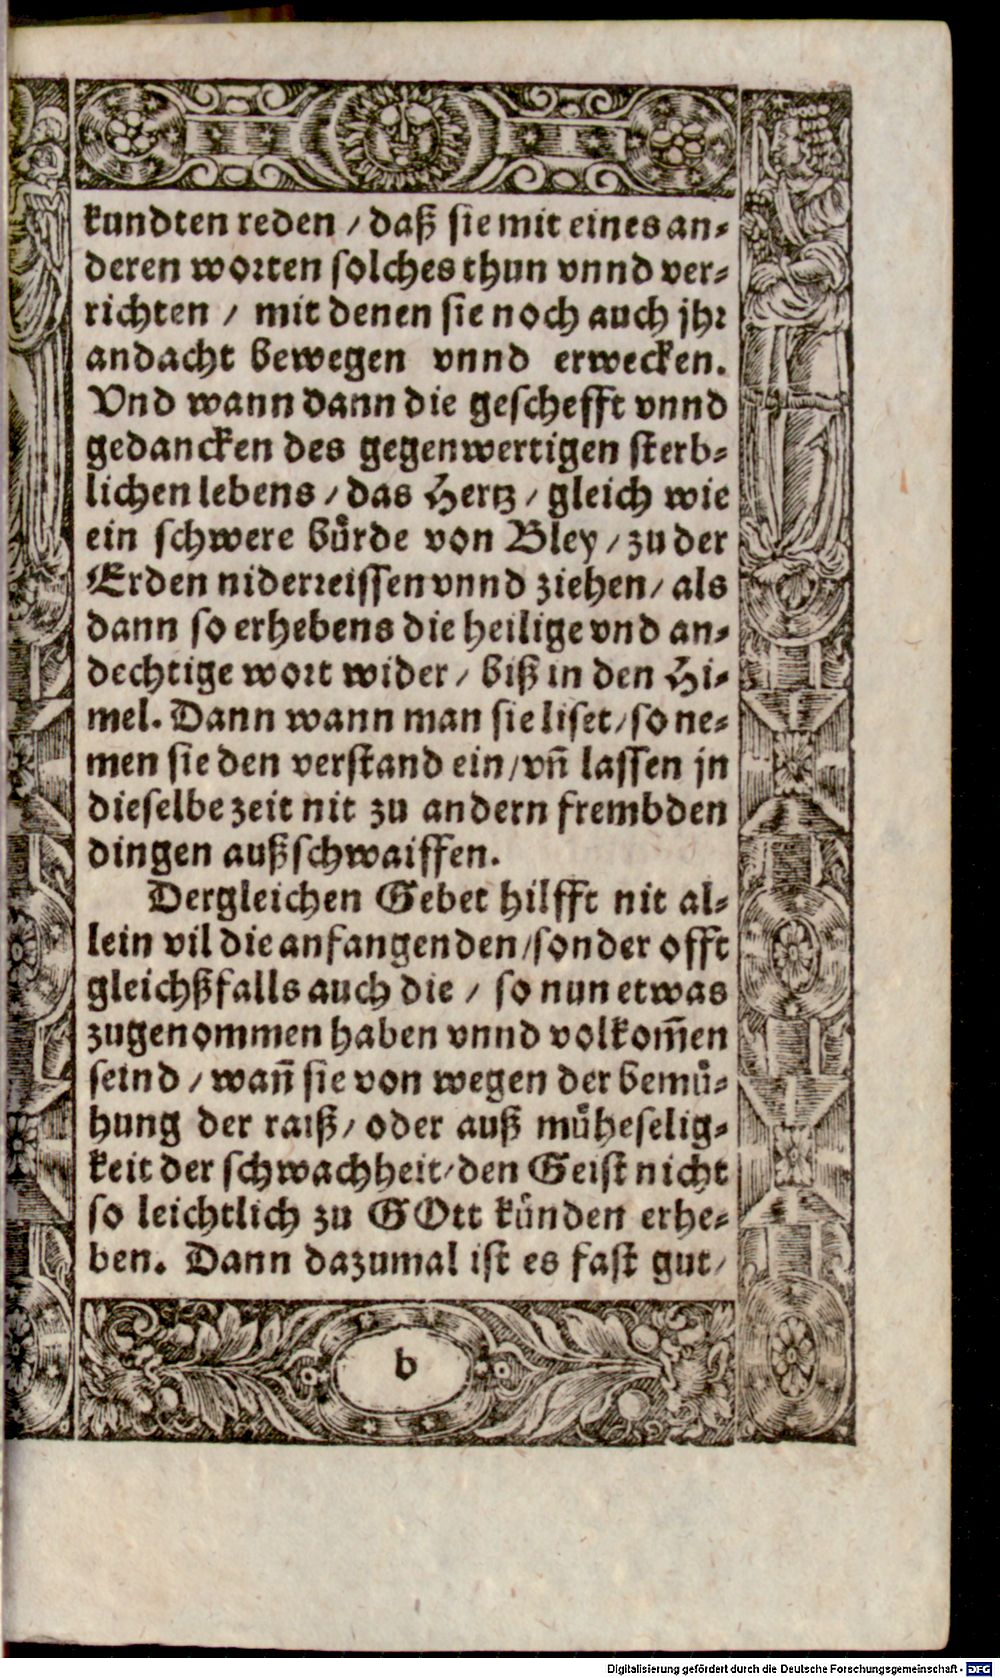 kundten reden / daß sie mit eines an⸗
deren worten solches thun vnnd ver⸗
richten / mit denen sie noch auch jhr
andacht bewegen vnnd erwecken.
Vnd wann dann die geschefft vnnd
gedancken des gegenwertigen sterb⸗
lichen lebens / das Hertz / gleich wie
ein schwere bůrde von Bley / zu der
Erden niderreissen vnnd ziehen / als
dann so erhebens die heilige vnd an⸗
dechtige wort wider / biß in den Hi⸗
mel. Dann wann man sie liset / so ne⸗
men sie den verstand ein / vñ lassen jn
dieselbe zeit nit zu andern frembden
dingen außschwaiffen.
Dergleichen Gebet hilfft nit al⸗
lein vil die anfangenden / sonder offt
gleichßfalls auch die / so nun etwas
zugenommen haben vnnd volkom̃en
seind / wañ sie von wegen der bemů⸗
hung der raiß / oder auß můheselig⸗
keit der schwachheit / den Geist nicht
so leichtlich zu GOtt kůnden erhe⸗
ben. Dann dazumal ist es fast gut /
b
Digitalisierung gefördert durch die Deutsche Forschungsgemeinschaft - DFG